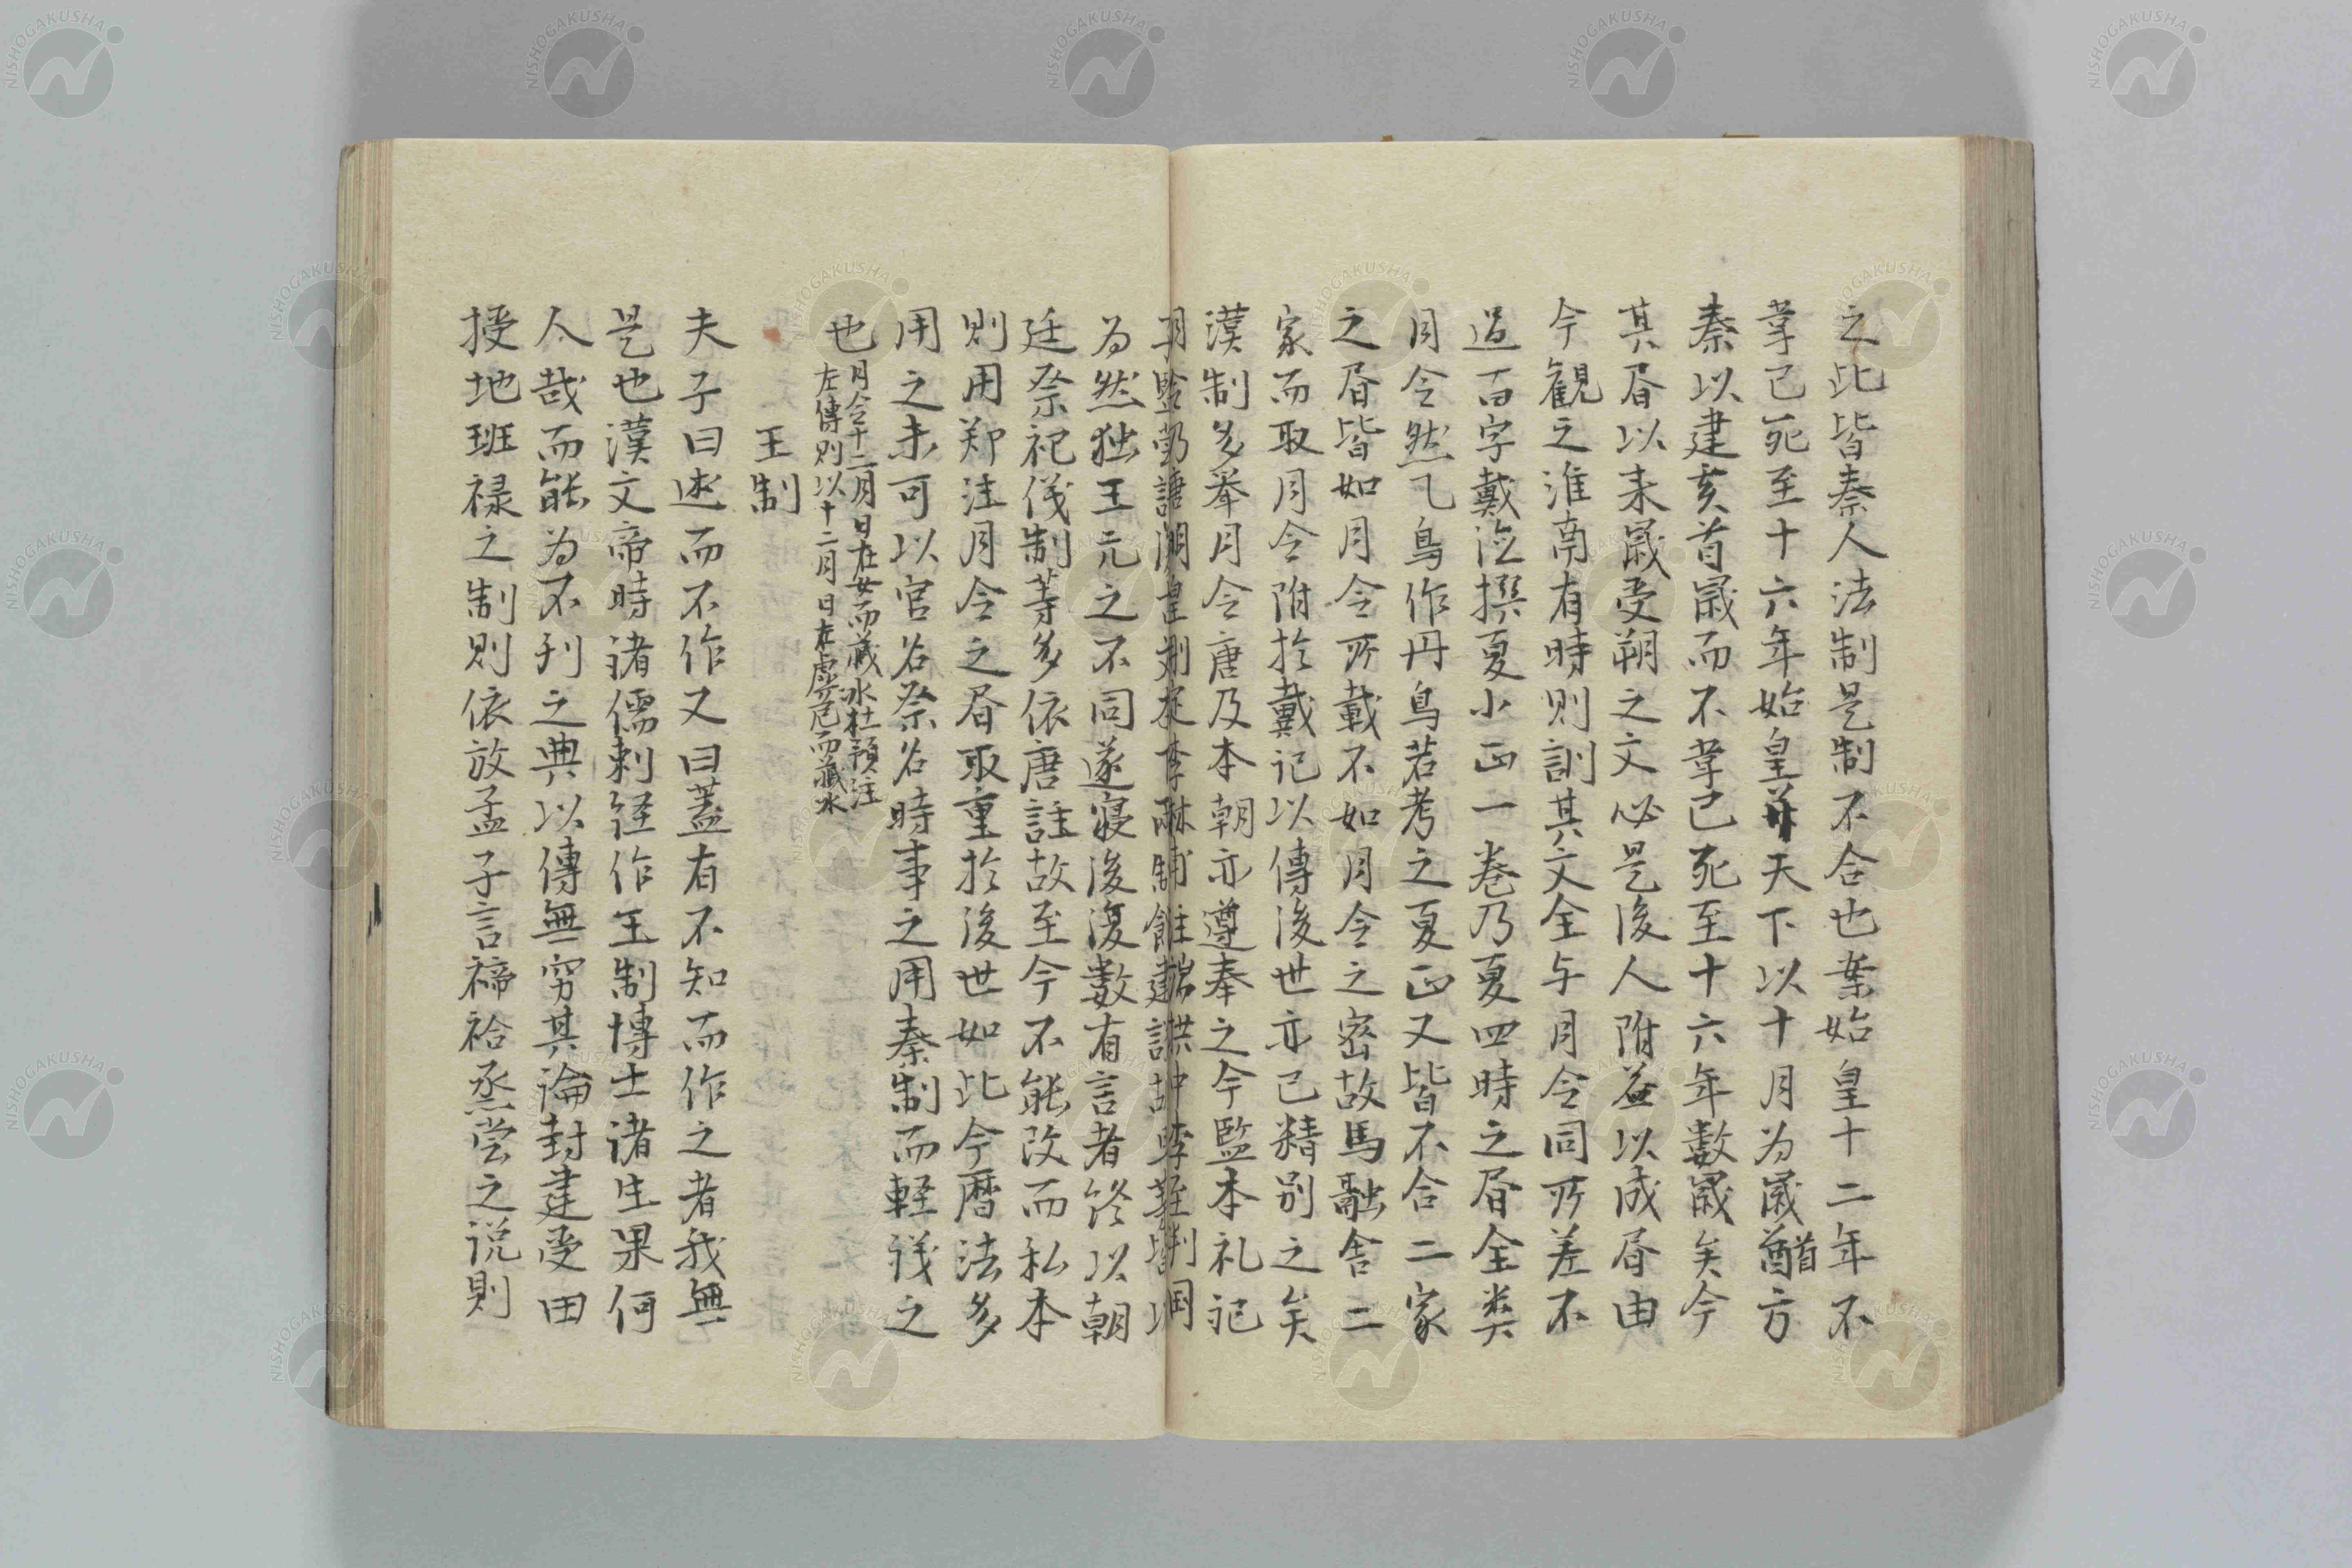 之此皆秦人法制是制不合也案始皇十二年不
韋已死至十六年始皇并天下以十月為歳酋方
秦以建亥首歳而不韋已死至十六年數歳矣今
其昏以来歳受朔之文必是後人附益以成昏由
今観之淮南有時則訓其文全与月令同所差不
過百字戴德撰夏小正一巻乃夏四時之昏全类
月令然乙鳥作丹鳥若考之夏正又皆不合二家
之昏皆如月令所載不如月令之密故馬融舍二
家而取月令附於戴記以傳後世亦已精別之矣
漢制多举月令唐及本朝亦遵奉之今監本礼記
為然独王元之不同遂寝後復數有言者終以朝
廷祭祀儀制等多依唐註故至今不能改而私本
則用郑注月令之昏取重於後世如此今暦法多
用之未可以官名祭名時事之用秦制而軽議之
也
月令十二月日在女而蔵冰杜預注
左傳則以十二月日在虚危而藏冰
王制
夫子曰述而不作又曰蓋有不知而作之者我無
是也漢文帝時诸儒刺経作王制博士诸生果何
人哉而能为不刊之典以傳無穷其論封建受田
授地班禄之制則依放孟子言禘祫烝尝之说則